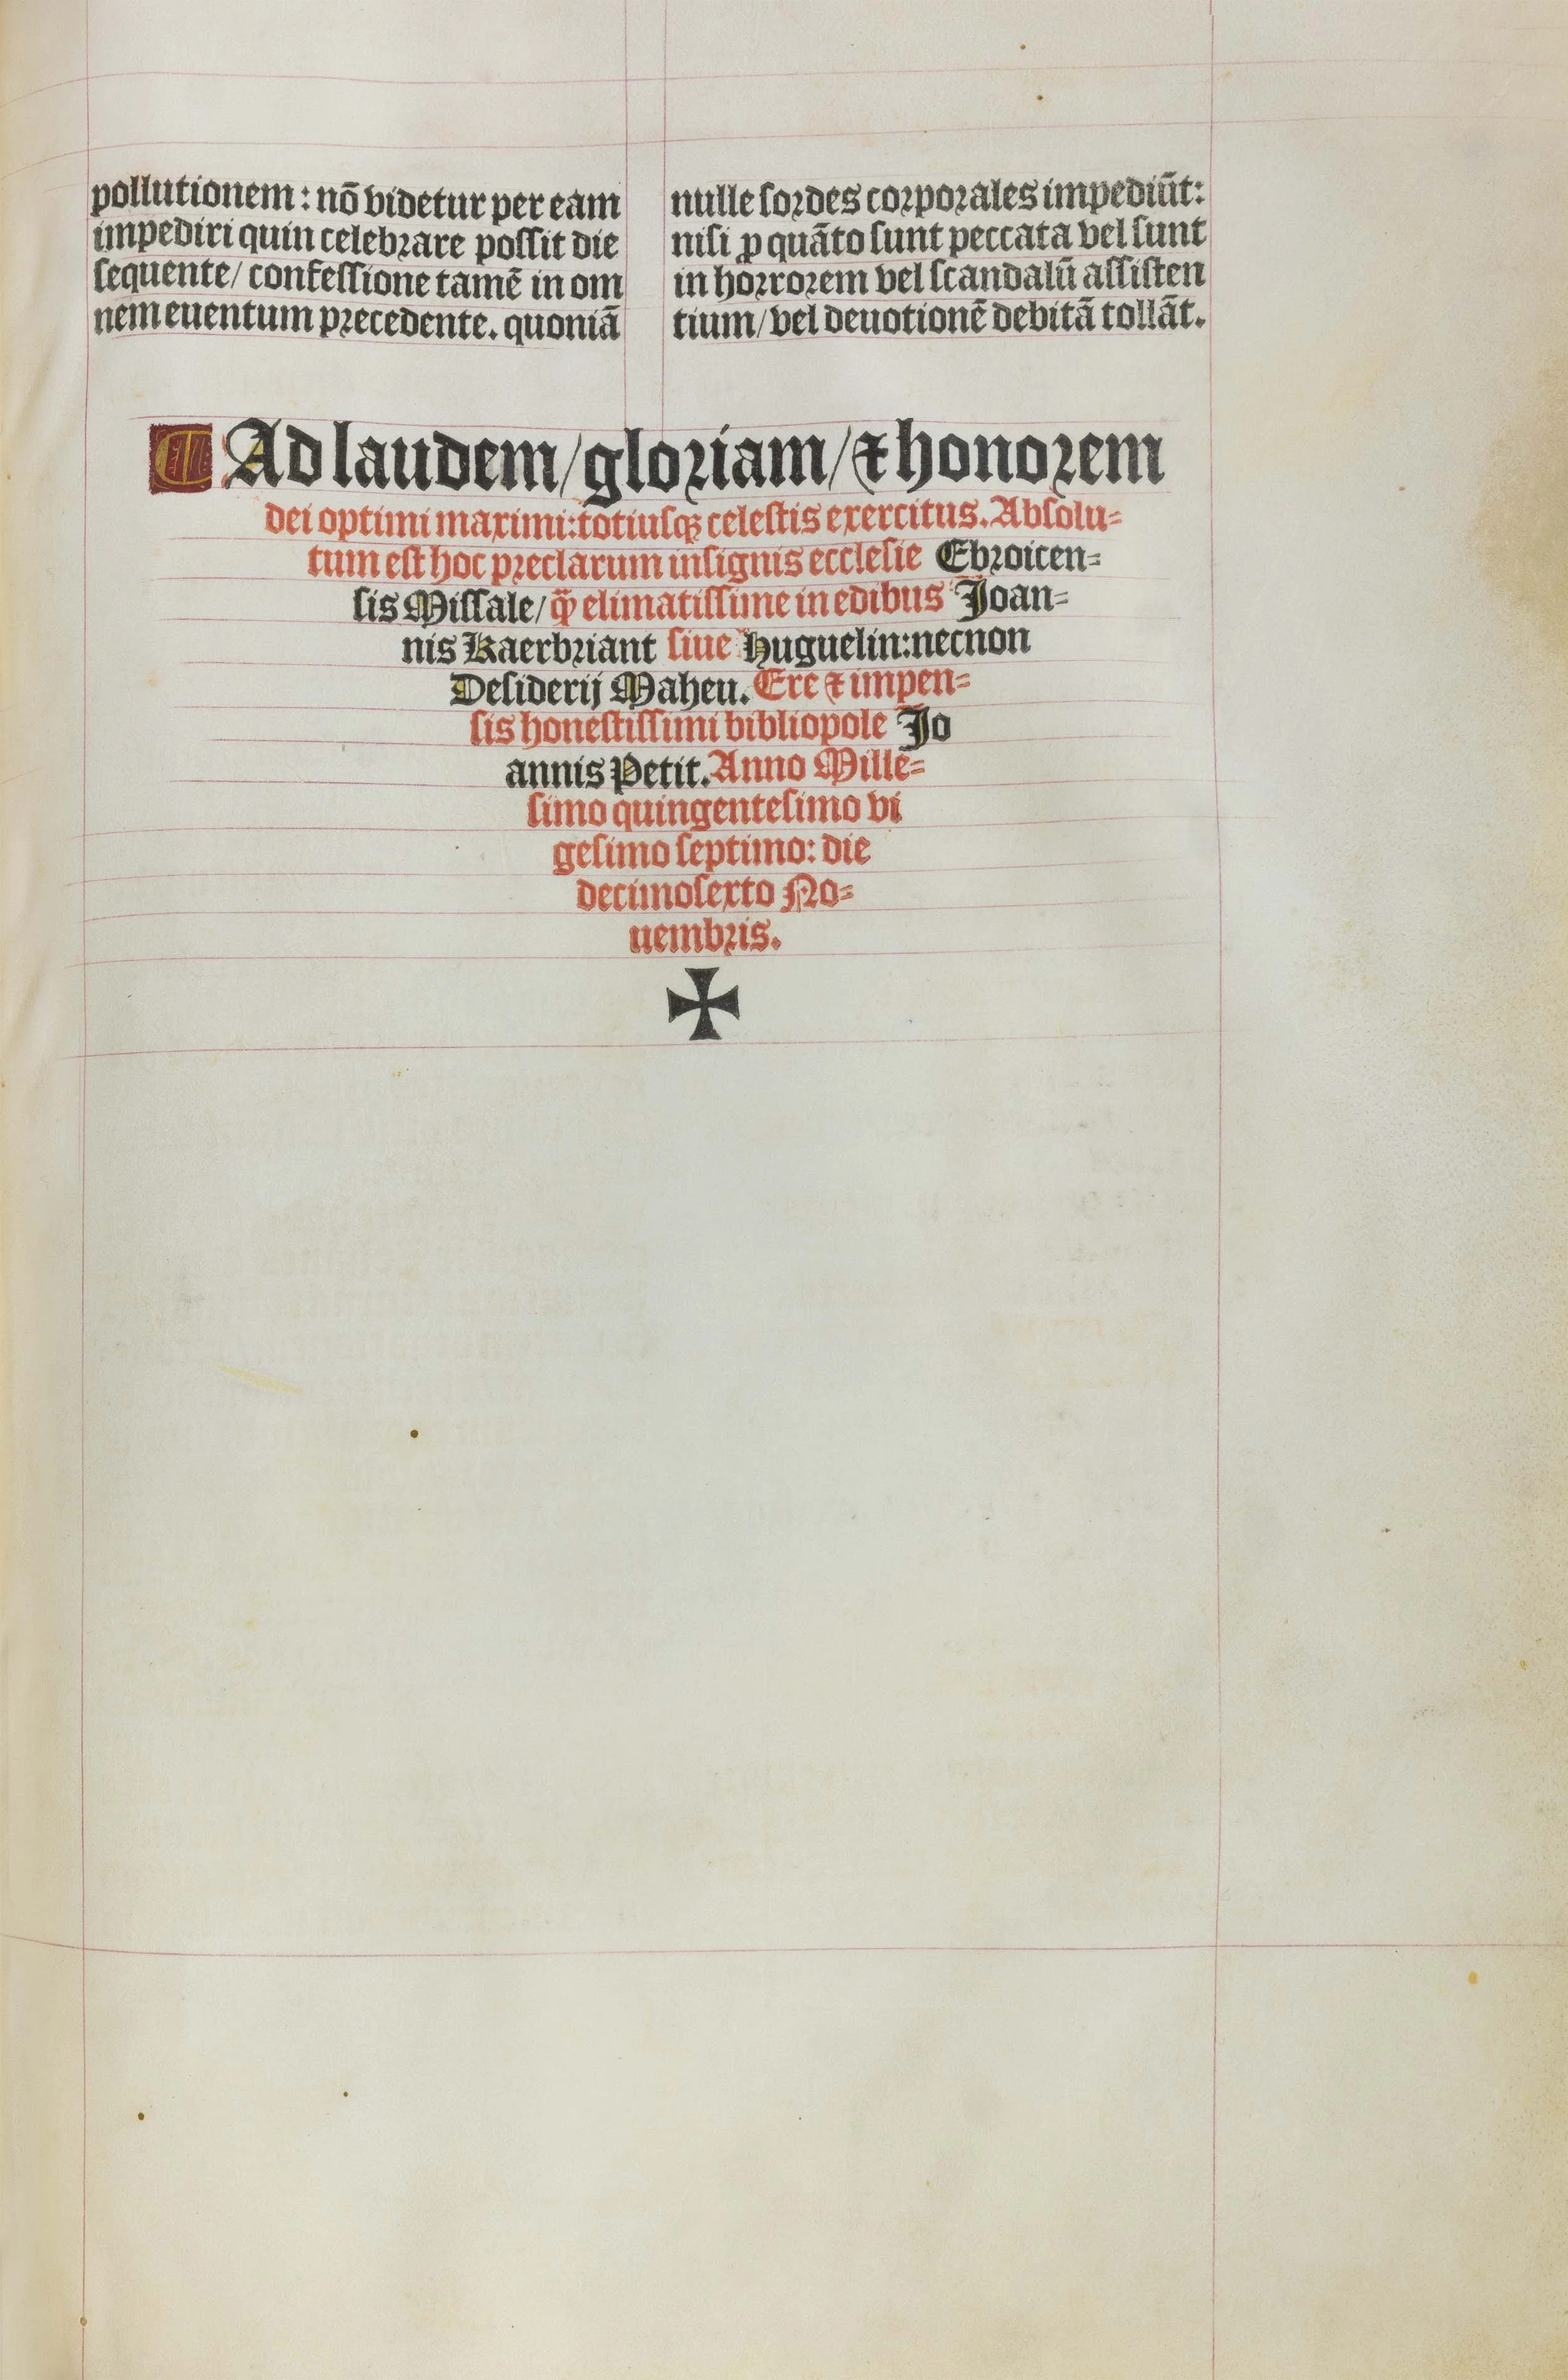 pollutionem: nō videtur per eam
impediri quin celebrare possit die
sequente/ confessione tamē in om
nem euentum precedente. quoniā
nulle sordes corporales impediūt:
nisi ꝓ quāto sunt peccata vel sunt
in horrorem vel scandalū assisten
tium/ vel deuotionē debitā tollāt.
Ad laudem/ gloriam/ ⁊ honorem
dei optimi maximi: totiusqꝫ celestis exercitus. Absolu-
tum est hoc preclarum insignis ecclesie Ebroicen-
sis Missale/ q̄ꝫ elimatissime in edibus Joan-
nis Kaerbriant siue Huguelin: necnon
Desiderij Maheu. Ere ⁊ impen-
sis honestissimi bibliopole Jo
annis Petit. Anno Mille-
simo quingentesimo vi
gesimo septimo: die
decimosexto No-
uembris.